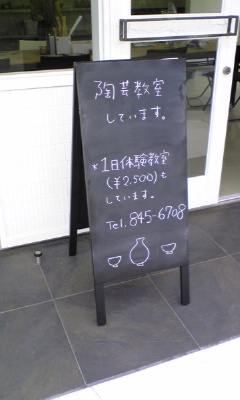 陶芸教室
しています。
*1日体験教室
(¥2,500)も
しています。
Tel. 845-6708